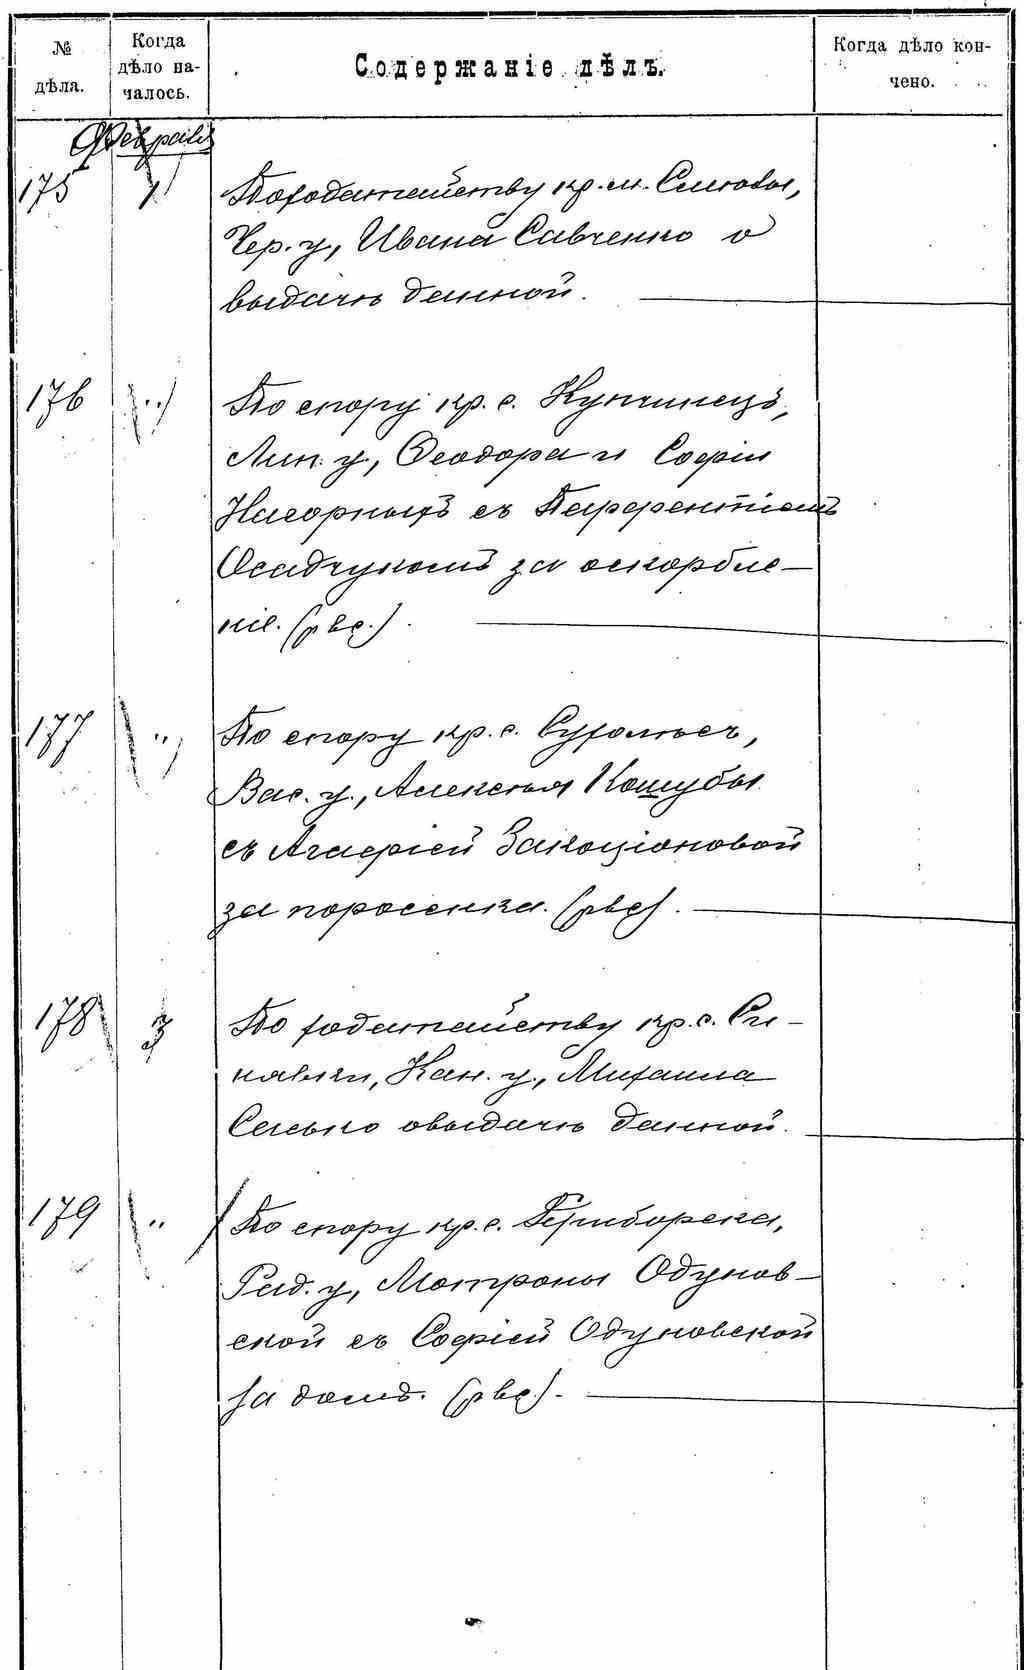 № дѣла.
Когда дѣло началось.
Содержаніе дѣлъ.
Когда дѣло кончено.
Февраля
175 1 По ходатайству кр. м. Смѣлы,
Чер. у, Ивана Савченко о
выдачѣ данной.
176 " По спору кр. с. Купчинецъ,
Лип. у, Ѳеодора и Софіи
Нагорныхъ съ Парфентіемъ
Осадчукомъ за оскорбле-
ніе. (рвс.).
177 " По спору кр. с. Сухолѣсъ,
Вас. у., Алексѣя Кошубы
съ Агафіей
за поросенка. (рвс).
178 3 По ходатайству кр. с. Си-
нявки, Кан. у., Михаила
Сасько о выдачѣ данной.
179 " По спору кр. с.
Рад. у, Мотроны Одунов-
ской съ Софіей Одуновской
за домъ. (рвс).